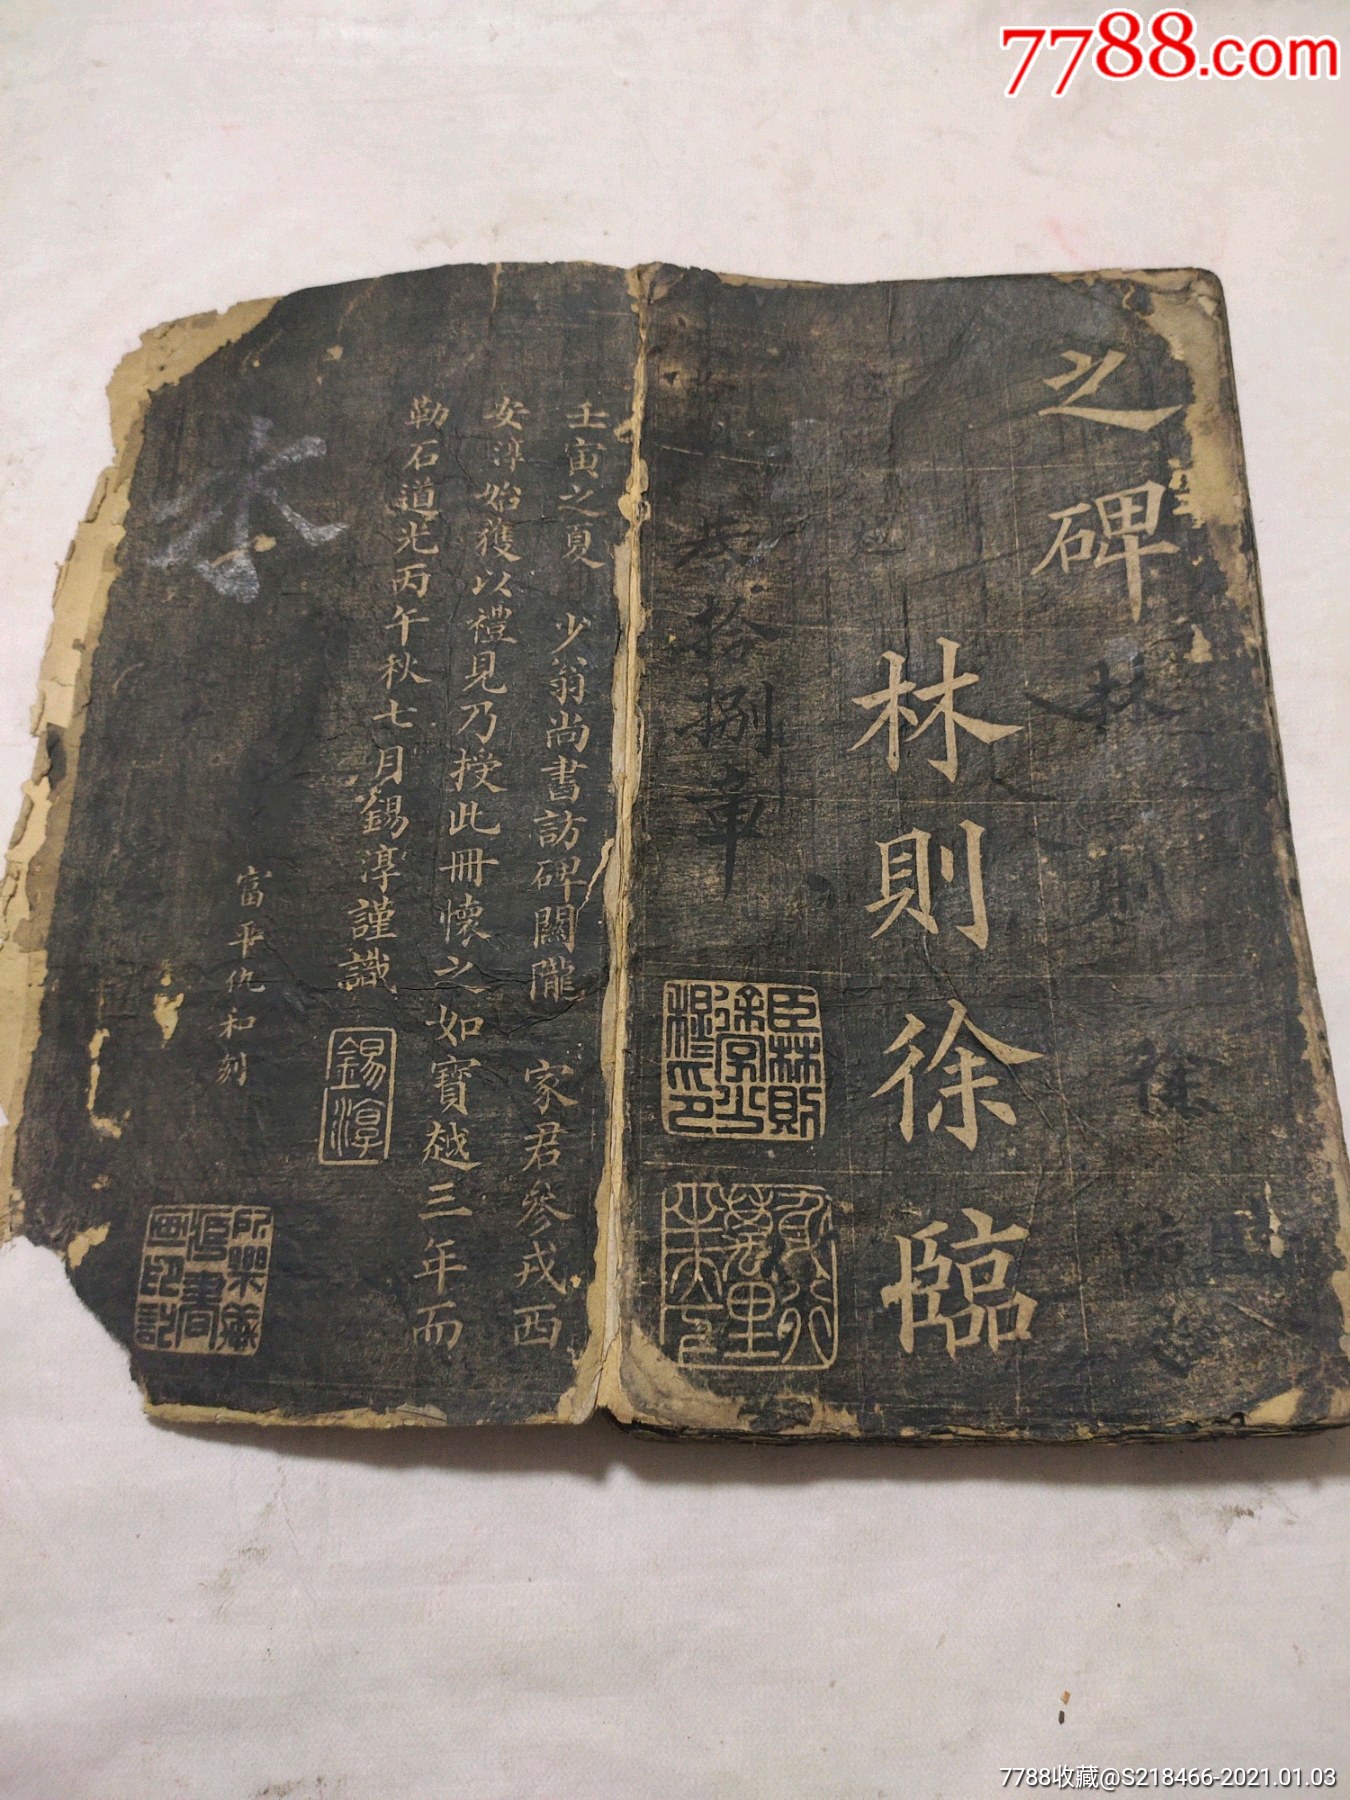 7788.com
之碑
林則徐臨
臣林則徐字少穆印
叁拾捌章
林
則
徐
臨
臨
壬寅之夏 少翁尚書訪碑關隴 家君參戎西
安淳始獲以禮見乃授此冊懷之如寶越三年而
勒石道光丙午秋七月錫淳謹識
錫淳
富平仇和刻
水
7788收藏@S218466-2021.01.03